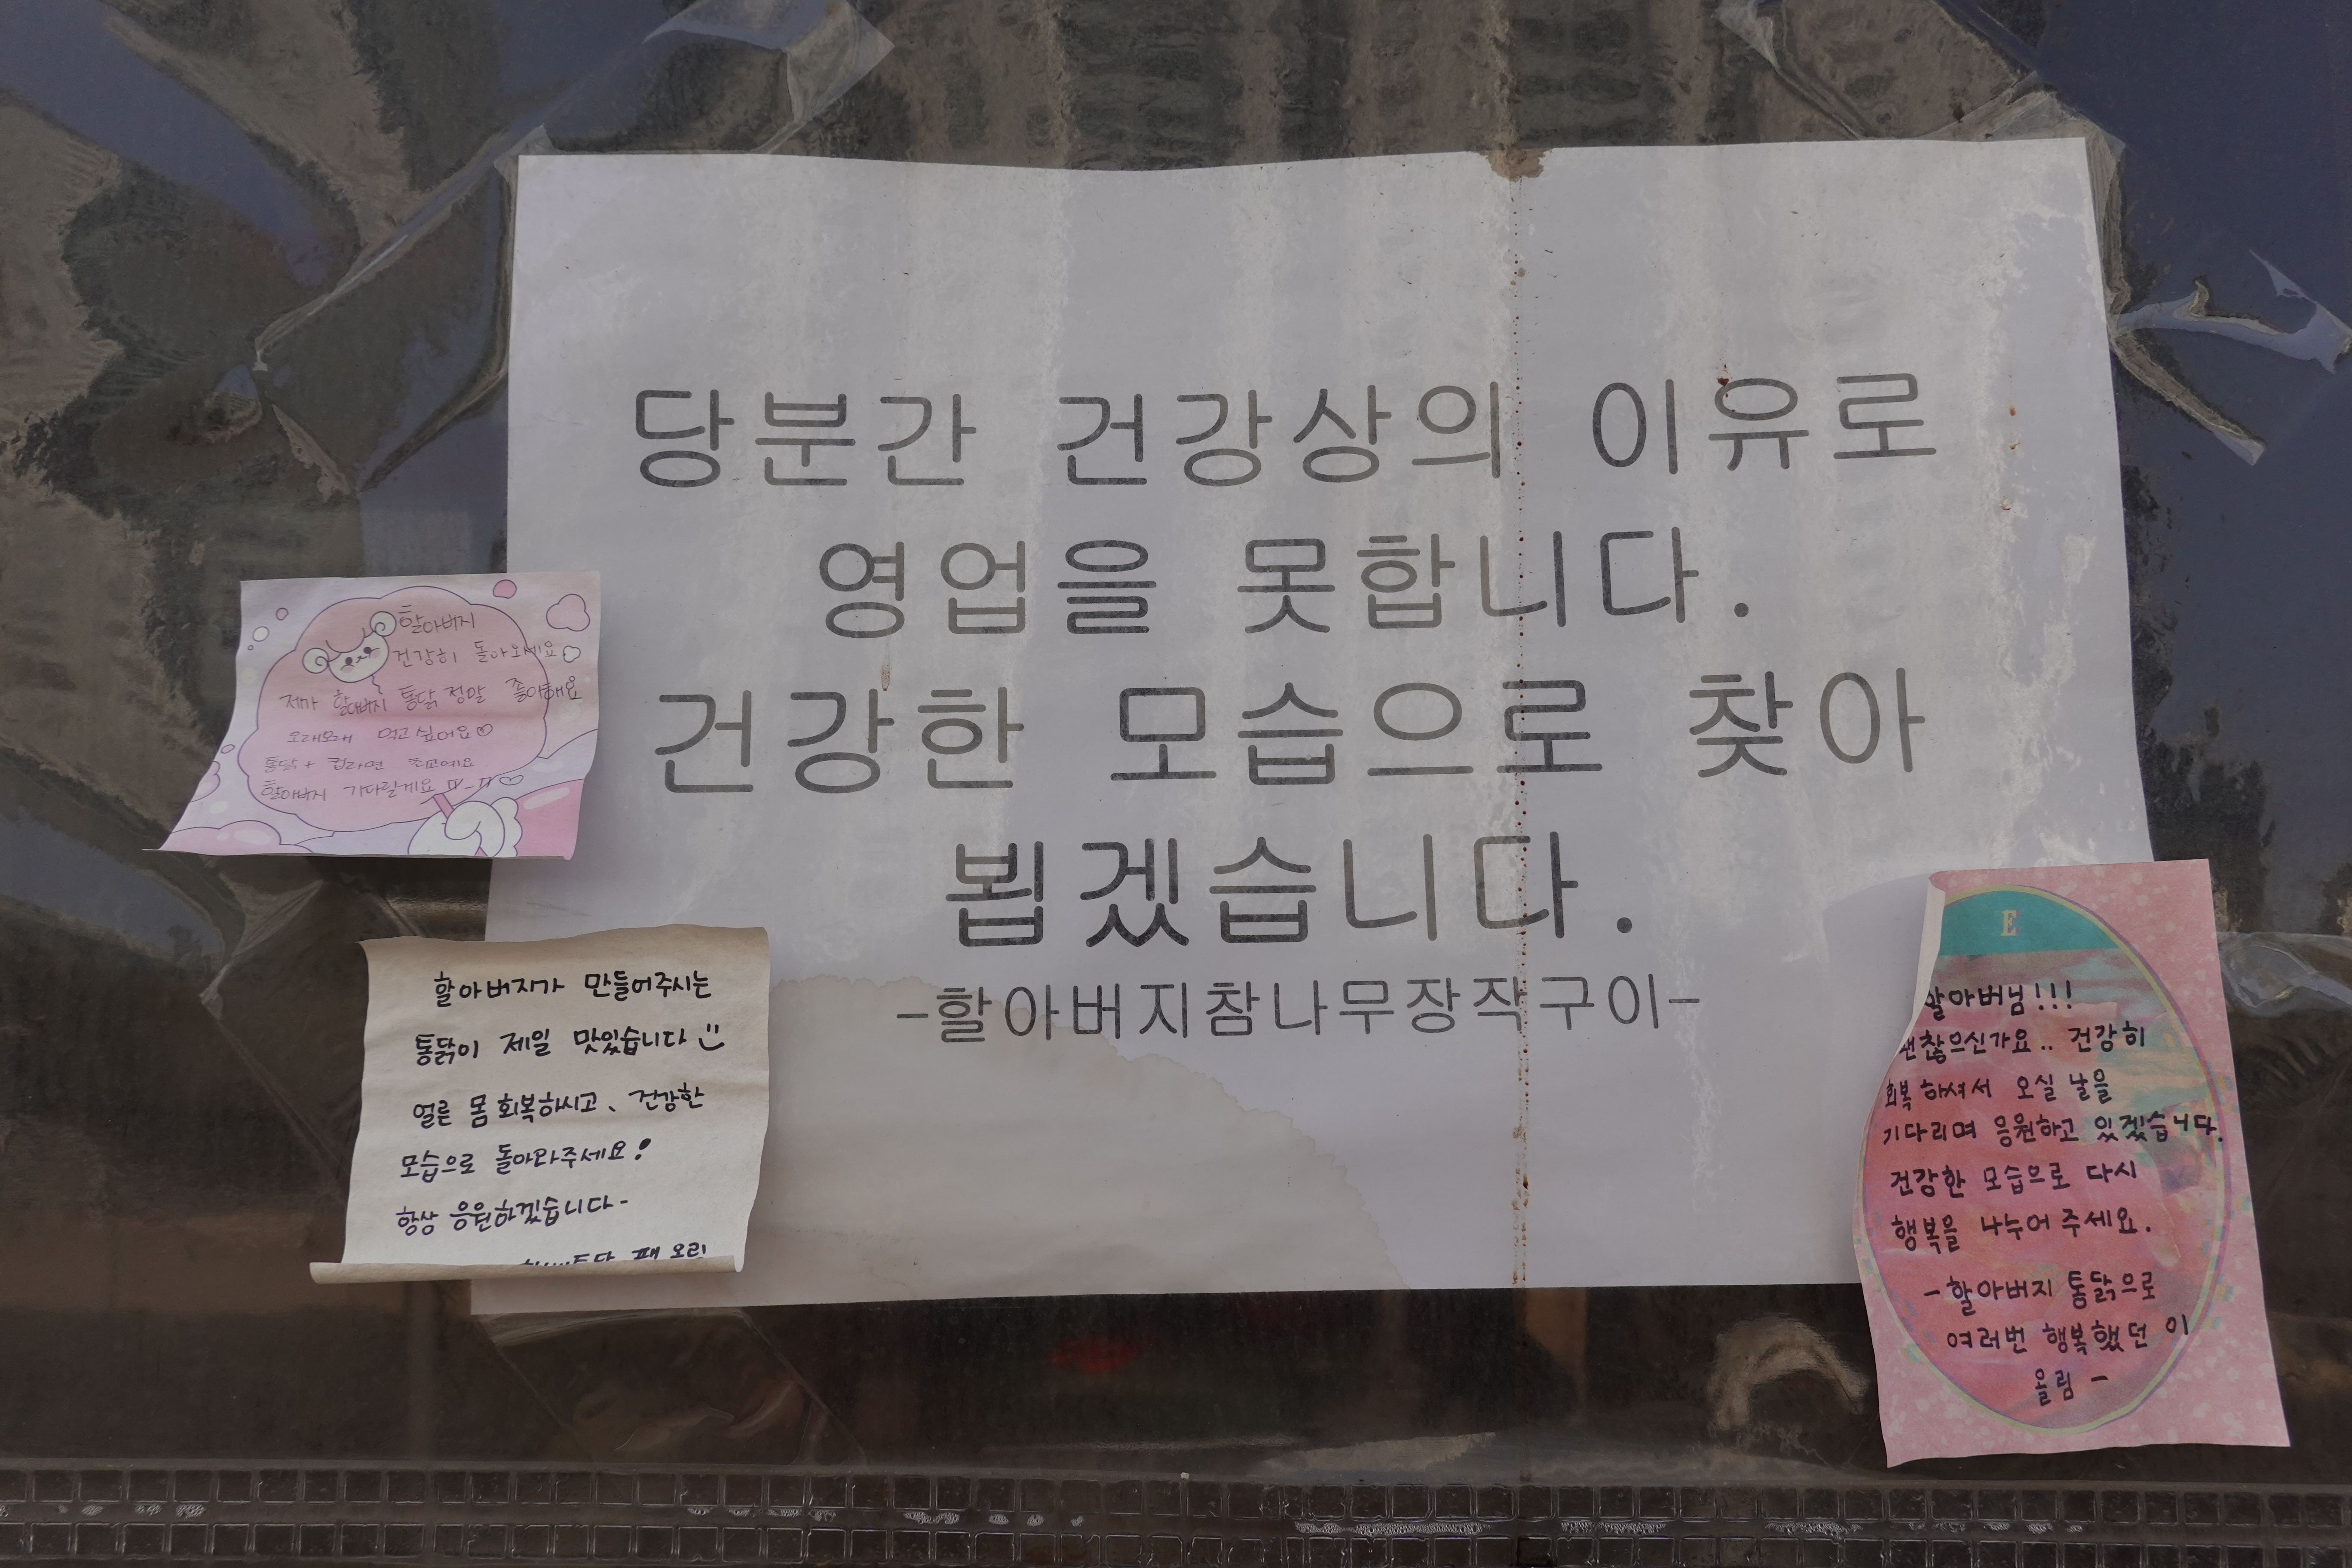 당분간 건강상의 이유로
영업을 못합니다.
건강한 모습으로 찾아
뵙겠습니다.
-할아버지참나무장작구이-
할아버지
건강히 돌아오세요
제가 할아버지 통닭 정말 좋아해요
오래오래 먹고 싶어요♡
통닭 + 컵라면 최고예요
할아버지 기다릴게요 ㅠ-ㅠ♡
할아버지가 만들어주시는
통닭이 제일 맛있습니다
얼른 몸 회복하시고, 건강한
모습으로 돌아와주세요!
항상 응원하겠습니다-
E
할아버님!!!
괜찮으신가요.. 건강히
회복하셔서 오실 날을
기다리며 응원하고 있겠습니다.
건강한 모습으로 다시
행복을 나누어 주세요.
-할아버지 통닭으로
여러번 행복했던 이
올림 -